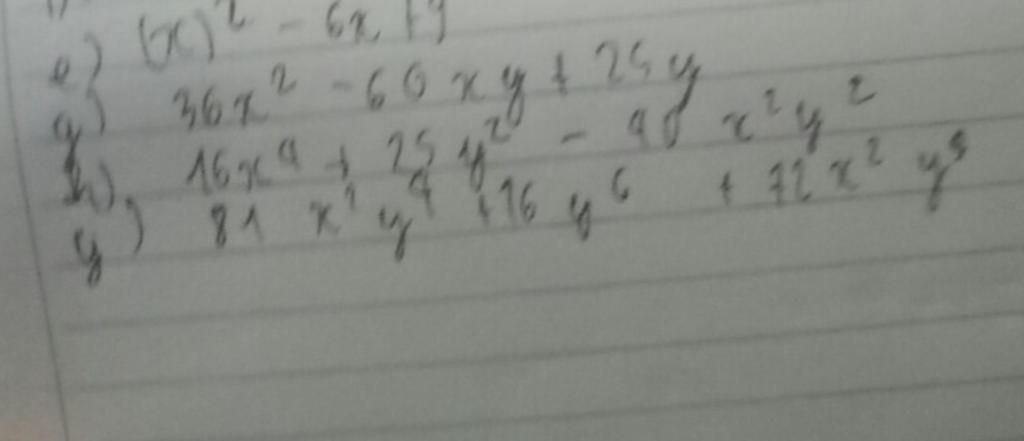 e) (x)² - 6x + 9
g) 36x² - 60xy + 25y
h) 16x⁴ + 25y² - 40 x²y²
y) 81 x² y⁴ + 16 y⁶ + 72x² y⁵